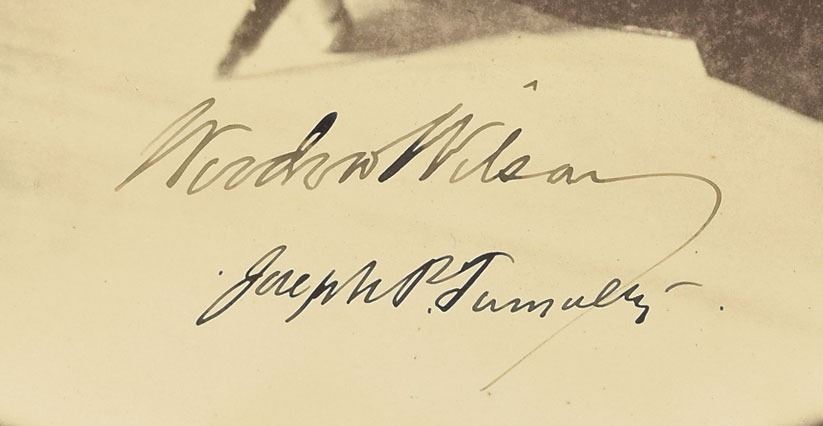 Woodrow Wilson
Joseph P. Tumulty.